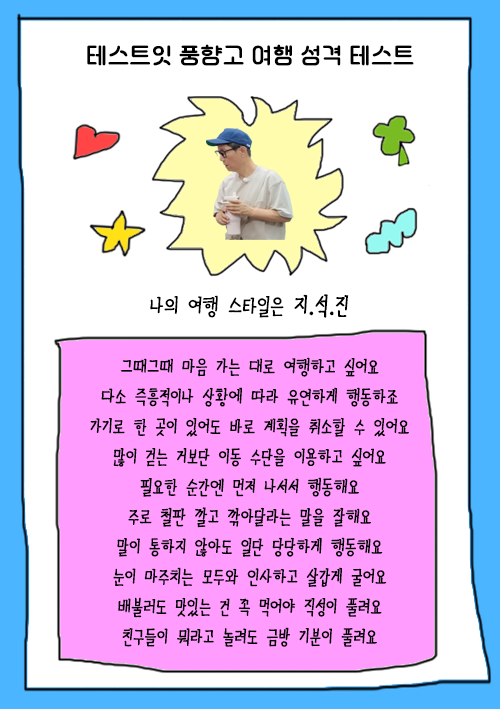 테스트잇 풍향고 여행 성격 테스트
나의 여행 스타일은 지.석.진
그때그때 마음 가는 대로 여행하고 싶어요
다소 즉흥적이나 상황에 따라 유연하게 행동하죠
가기로 한 곳이 있어도 바로 계획을 취소할 수 있어요
많이 걷는 거보단 이동 수단을 이용하고 싶어요
필요한 순간엔 먼저 나서서 행동해요
주로 철판 깔고 깎아달라는 말을 잘해요
말이 통하지 않아도 일단 당당하게 행동해요
눈이 마주치는 모두와 인사하고 살갑게 굴어요
배불러도 맛있는 건 꼭 먹어야 직성이 풀려요
친구들이 뭐라고 놀려도 금방 기분이 풀려요